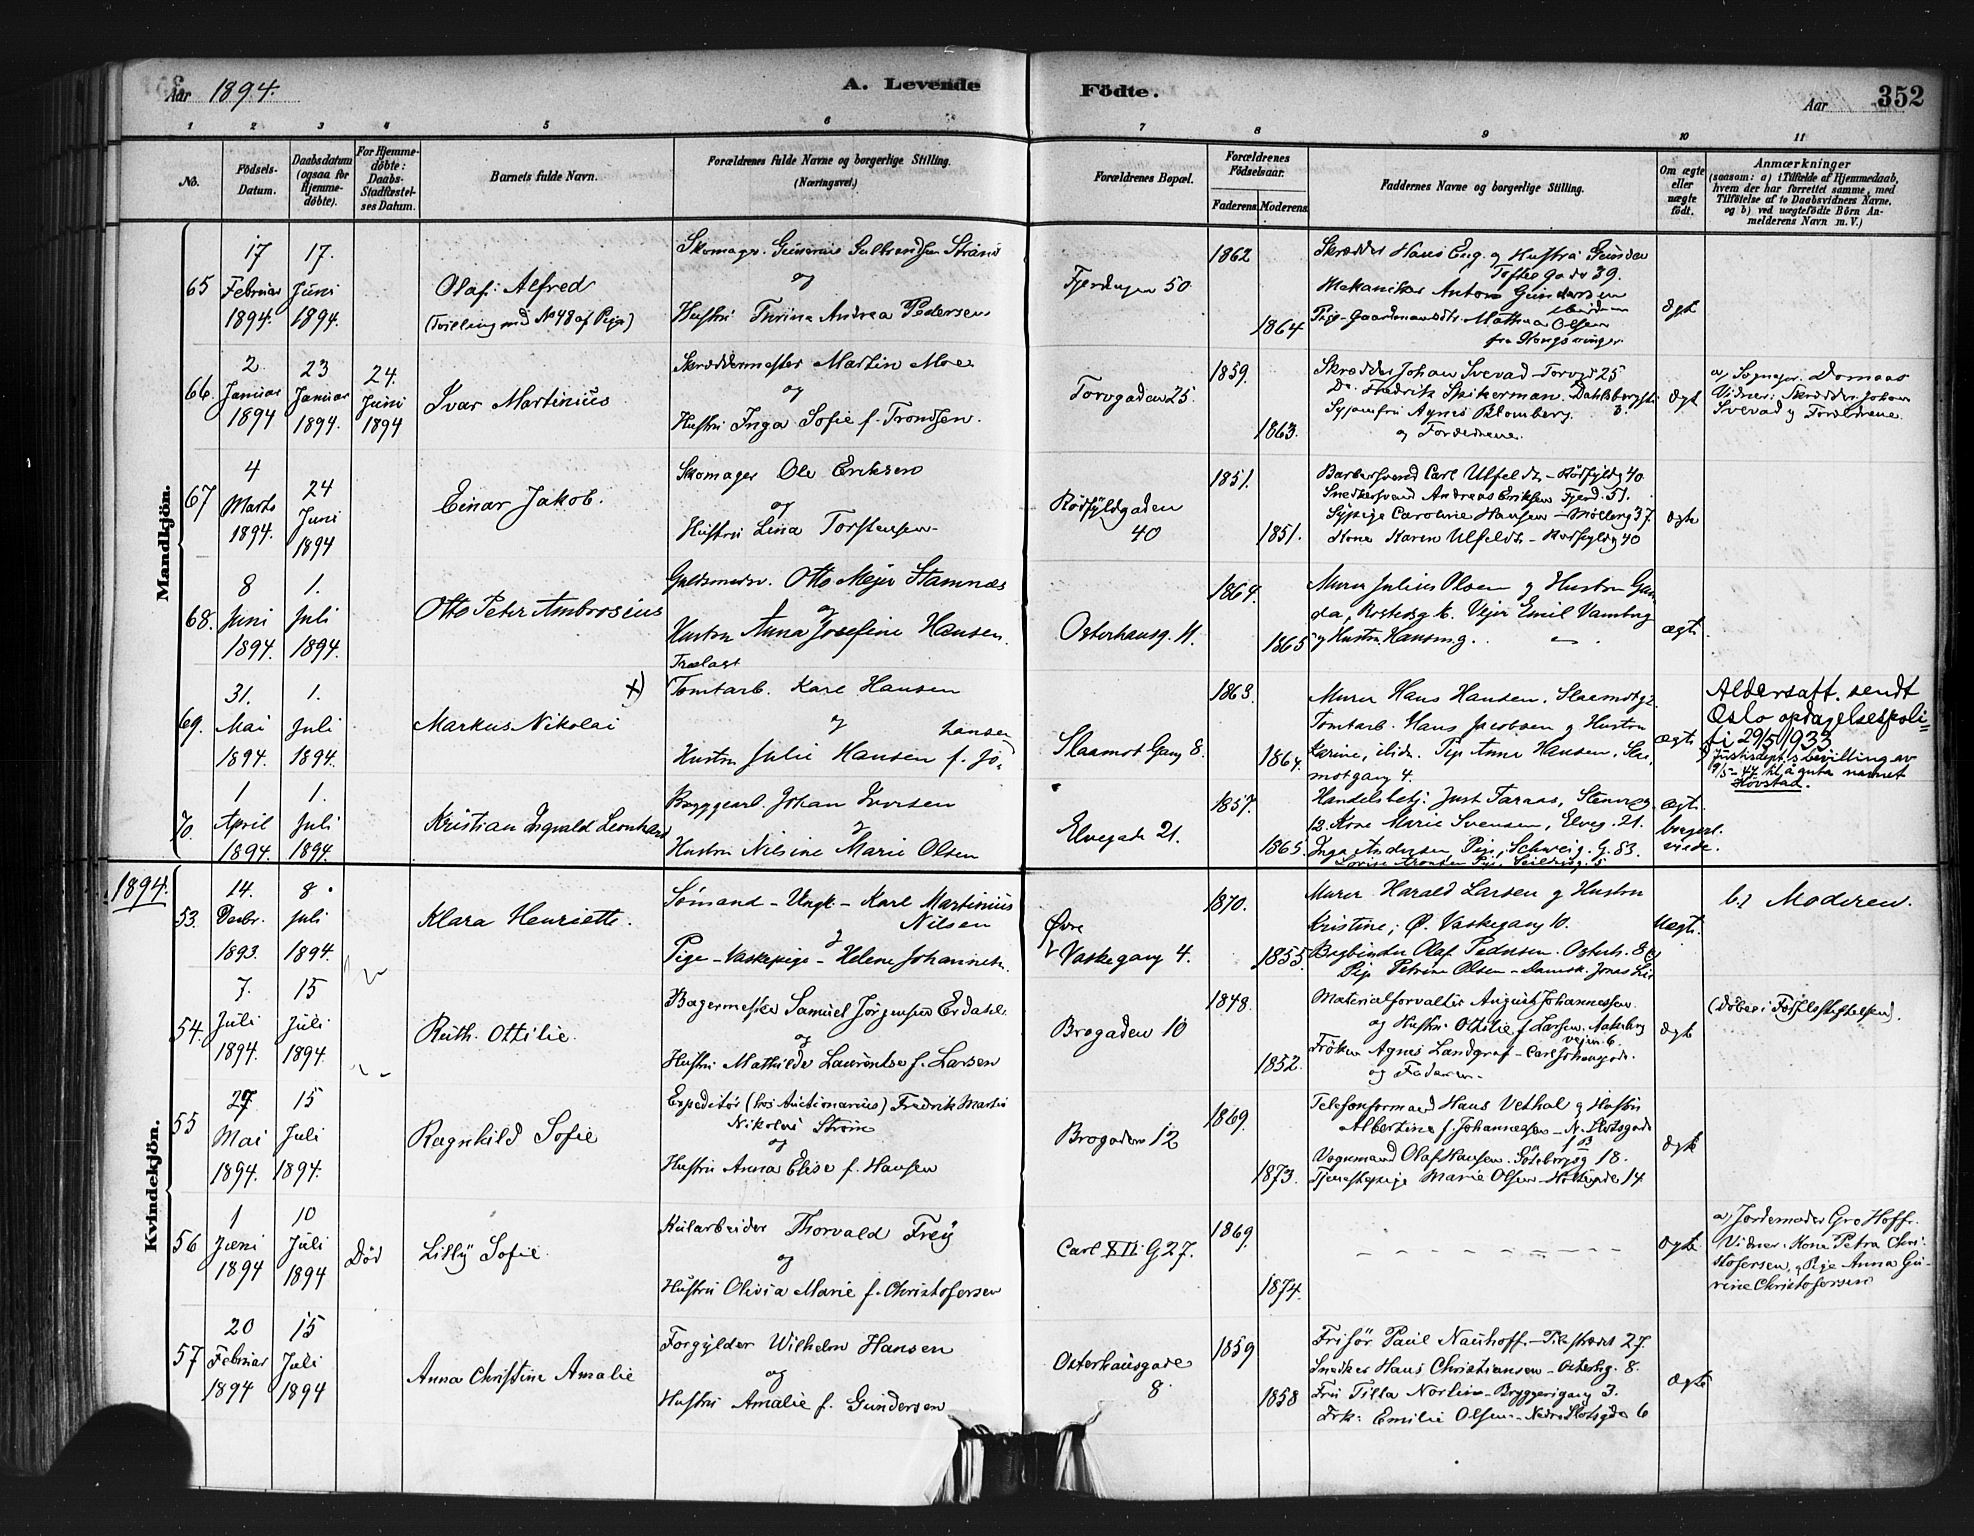 Aar 1894.
A. Levende Födte.
Aar 352
1 2 3 4 5 6 7 8 9 10 11
No.
Födsels-
Datum.
Daabsdatum
(ogsaa for
Hjemme-
döbte).
For Hjemme-
döbte:
Daabs-
Stadfæstel-
ses Datum.
Barnets fulde Navn.
Forældrenes fulde Navne og borgerlige Stilling.
(Næringsvei.)
Forældrenes Bopæl.
Forældrenes
Födselsaar.
Faderens Moderens
Faddernes Navne og borgerlige Stilling.
Om ægte
eller
uægte
födt.
Anmærkninger
(saasom: a) i Tilfælde af Hjemmedaab,
hvem der har forrettet samme, med
Tilföielse af to Daabsvidners Navne,
og b) ved uægtefödte Börn An-
melderens Navn m. V.)
Mandkjön.
65
17 Februar 1894.
17. Juni 1894.
Olaf Alfred
(Tvilling med No 48 af Piger)
Skomager Gulbrandsen Strand
og
Hustru Turina Andrea Pedersen
Fjerdingen 50
1862
1864
Skrædder Hans Eng og Hustru
Toftes Gade 39.
Mekaniker Anton Gundersen
Mathea Olsen
fra Kongsvinger
ægte
66.
2. Januar 1894
23 Januar 1894.
24. Juni 1894
Ivar Martinius
Skræddermester Martin Moe
og
Hustru Inga Sofie f. Trondsen.
Torvgaden 25.
1859.
1863.
Skrædder Johan Svevad Torvgd 25
Do. Fredrik Spikerman. Dahlsbergsti 3.
Syjomfru Agnes Blomberg.
og Forældrene.
ægte
a) Sogneprr. Domaas
Vidner: Skrædder Johan
Svevad og Forældrene.
67
4 Marts 1894.
24 Juni 1894
Einar Jakob.
Skomager Ole Eriksen
og
Hustru Lina Torstensen
Rödfyldgaden
40
1851.
1851.
Barbersvend Carl Ulfeldt - Rödfyldg 40
Snedkersvend Andreas Eriksen Fjerd. 51.
Sypige Caroline Hansen - Mölleng 37.
Kone Karen Ulfeldt - Rödfyldg 40
ægte
68.
8 Juni 1894.
1. Juli 1894.
Otto Peter Ambrosius
Guldsmedsv. Otto Mejer Stamnæs
og
Hustru Anna Josefine Hansen.
Osterhausg. 11.
1864.
1865
Murer Julius Olsen og Hustru Gun-
da, Rostedsg 16. Vejer Emil Vamberg
og Hustru Hansine.
ægte
69.
31. Mai 1894.
1. Juli 1894.
Markus Nikolai
x)
Trælast
Tomtarb. Karl Hansen
og
Hustru Julie Hansen f. Jo-
hansen
Slaamot Gang 8.
1863
1864.
Murer Hans Hansen, Slaamotg 2.
Tomtarb. Hans Jacobsen og Hustru
Karine, ibid. Pige Anne Hansen, Slaa-
motgang 4.
ægte
Aldersatt. sendt
Oslo opdagelsespoli-
ti 29/5 1933
x) Justisdept.s bevilling av
9/5-44 til å anta navnet
Hovstad.
70.
1 April 1894.
1. Juli 1894.
Kristian Ingvald Leonhard
Byggearb. Johan Iversen
og
Hustru Nilsine Marie Olsen
Elvegade 21.
1857.
1865.
Handelsbetj. Just Faraas, Stenersg.
12. Kone Marie Svensen, Elveg. 21.
Inga Andersen, Pige, Schweig. G. 83.
ægte.
borgerl.
viede.
1894.
Kvindekjön.
53.
14. Decbr. 1893.
8 Juli 1894.
Klara Henriette.
Sömand - Ungk - Karl Martinius
Nilsen
og
Pige - Vaskepige - Helene Johannesen.
Övre
Vaskegang 4.
1870.
1855.
Murer Harald Larsen og Hustru
Kristine, Ö. Vaskegang 10.
Bogbinder Olaf Pedersen. Osterh. 8
Pige Petrine Olsen - Damsk. Jonas Lie
Uægte.
b.) Moderen.
54.
7. Juli 1894.
15 Juli 1894.
Ruth Ottilie
Bagermester Samuel Jörgensen Erdahl
og
Hustru Mathilde Laurentse f. Larsen
Brogaden 10
1848.
1852.
Materialforvalter August Johannessen
og Hustru Othilie f. Larsen. Aakeberg
vejen 6.
Fröken Agnes Landgraf - Carl Johansgade.
og Faderen.
ægte
(Döbt i Födselsstiftelsen).
55
27 Mai 1894.
15 Juli 1894.
Ragnhild Sofie
Expeditör (hos Auctionarius) Fredrik Martin
Nikolai Ström
og
Hustru Anna Elise f. Hansen
Brogaden 12
1869.
1873.
Telefonformand Hans Vethal og Hustru
Albertine f. Johannessen - N. Slotsgade
13
Vognmand Olaf Hansen. Göteborgsg 18.
Tjenestepige Marie Olsen - Holtegade 14
ægte
56
1 Juni 1894
10 Juli 1894
Död
Lilly Sofie
Kularbeider Thorvald Frey
og
Hustru Olivia Marie f. Christofersen
Carl XII G 27.
1869.
1874.
ægte
a) Jordemoder Gro Hoff.
Vidner. Kone Petra Chri-
stofersen, og Pige Anna Gu-
rine Christofersen
57
20 Februar 1894
15 Juli 1894
Anna Christine Amalie
Forgylder Wilhelm Hansen
og
Hustru Amalie f. Gundersen
Osterhausgade
8.
1859
1858
Frisör Paul Nauhoff - Pilestrædet 27.
Snedker Hans Christiansen - Osterhg. 8.
Fru Tilla Norlin - Bryggerigang 3.
Frk: Emilie Olsen - Nedre Slotsgd 6
ægte